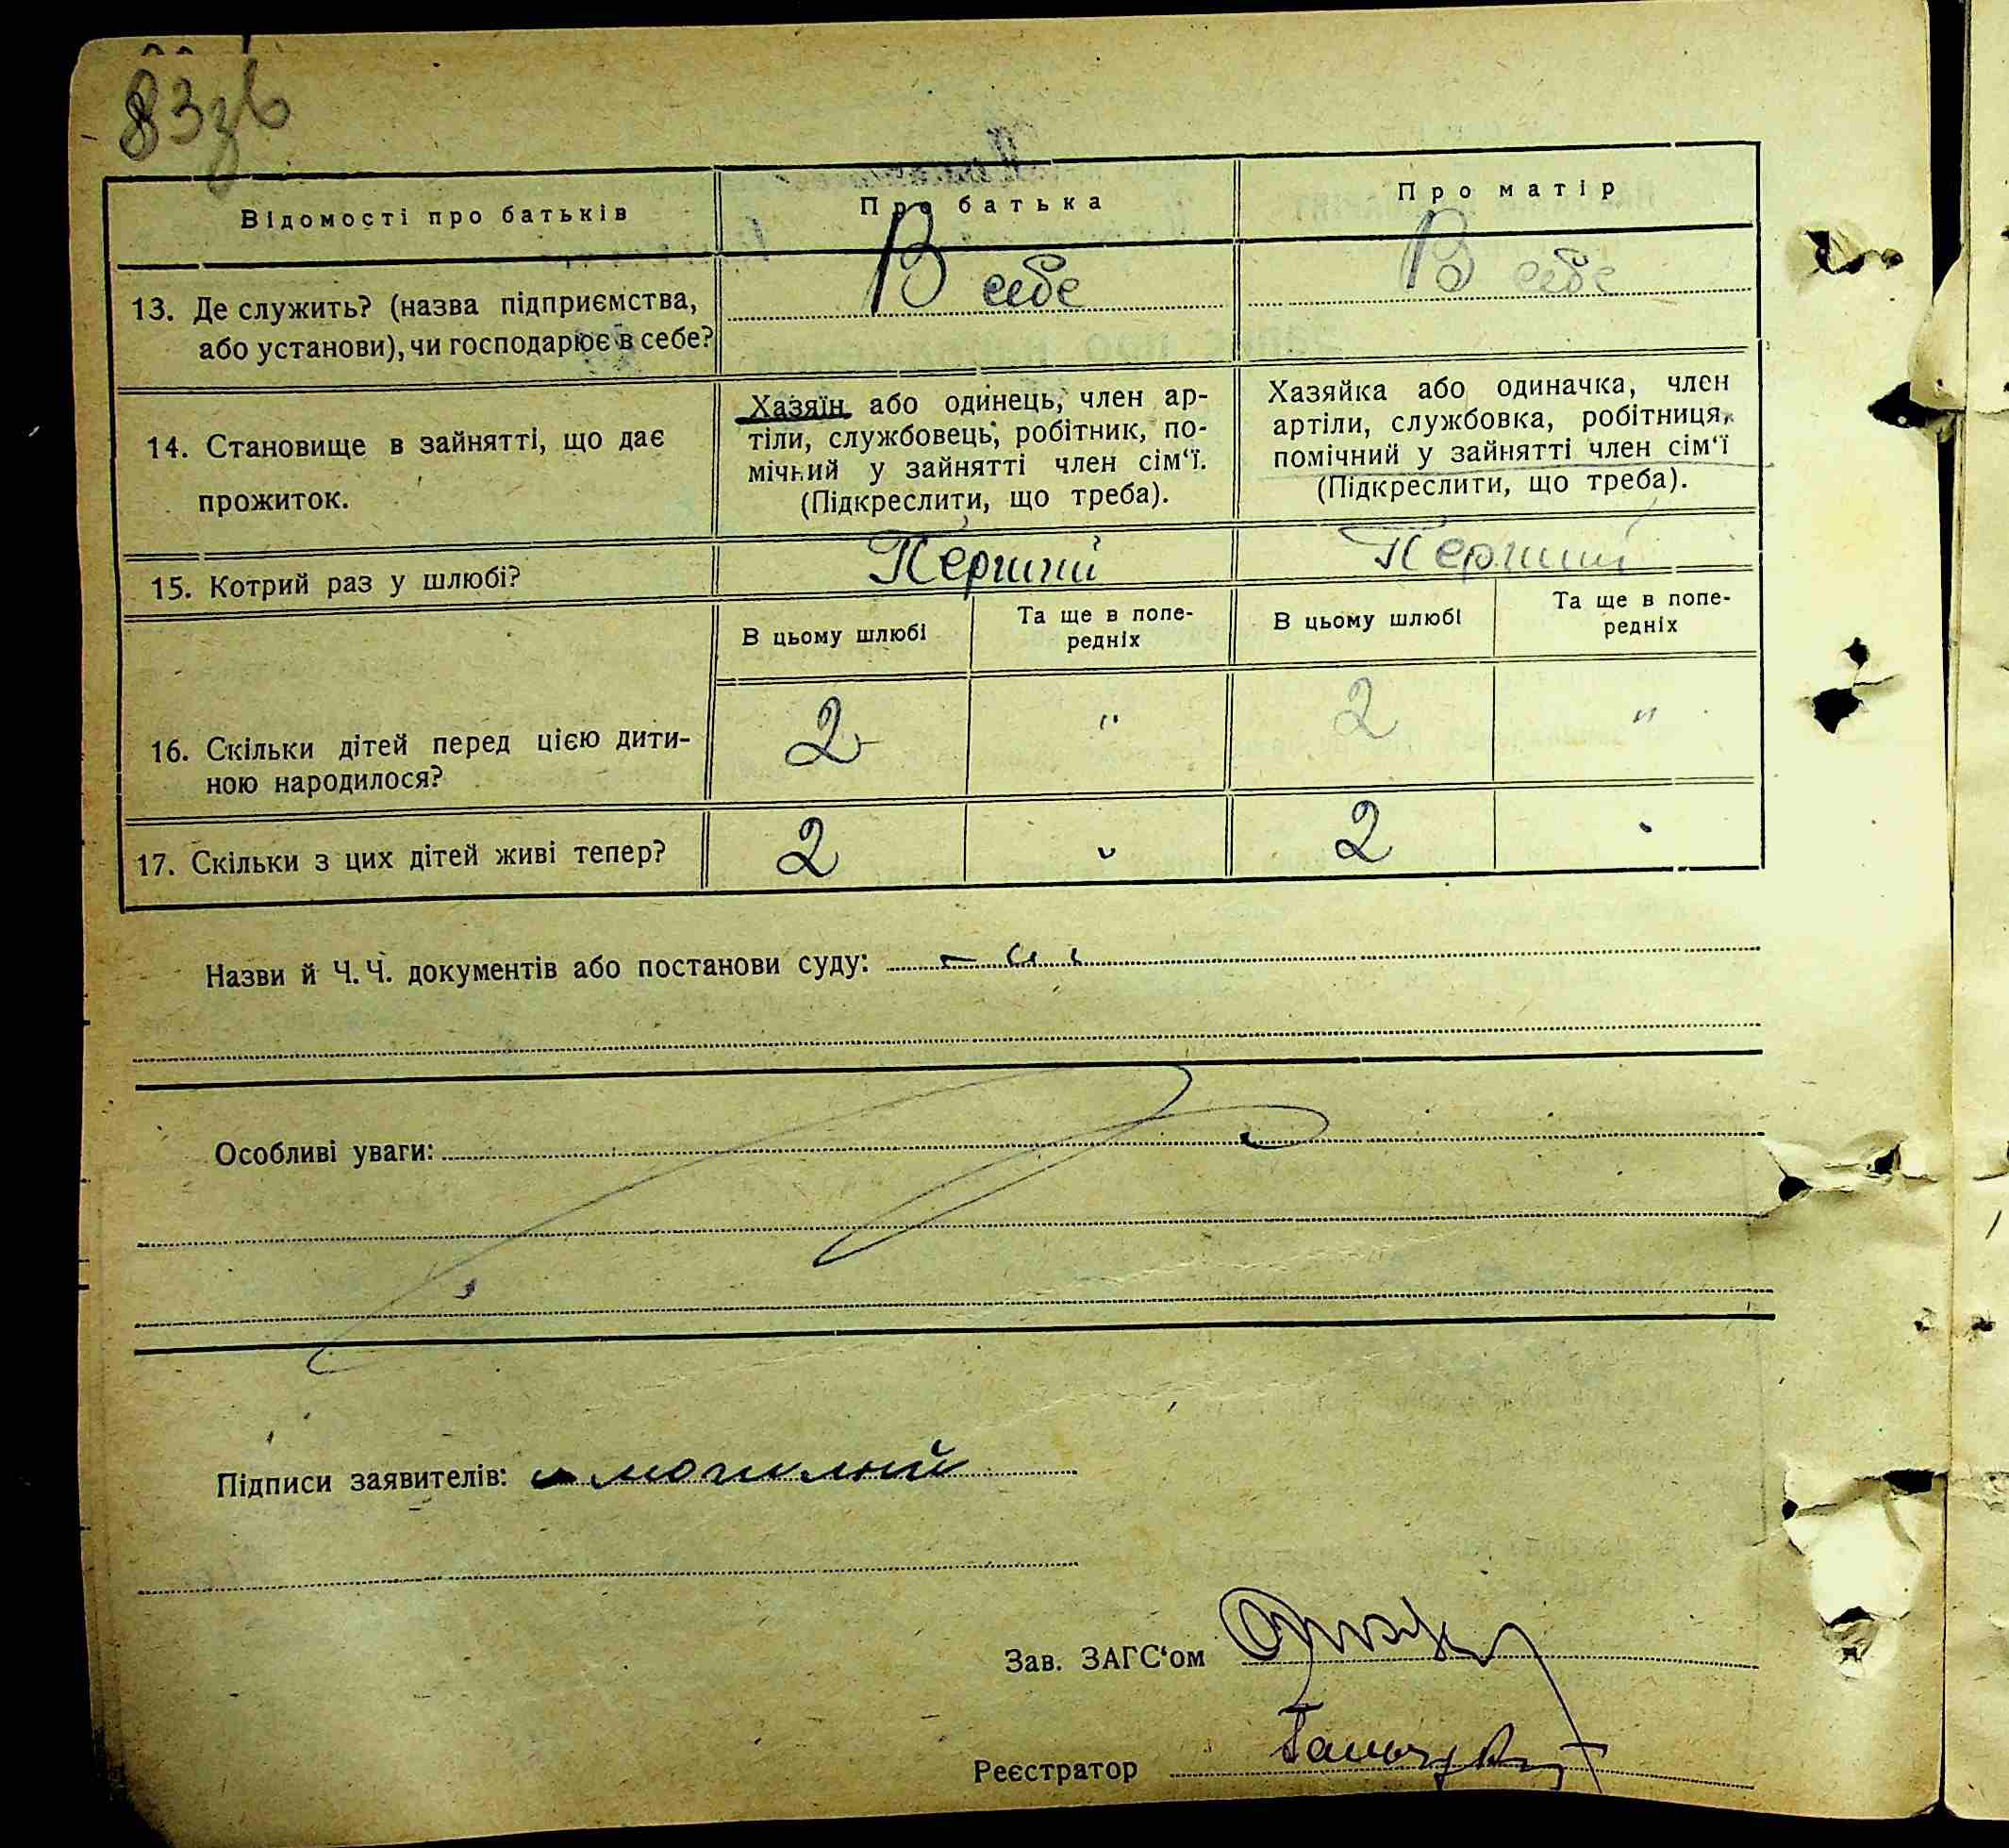 83зв
Відомості про батьків
Про батька
Про матір
13. Де служить? (назва підприємства, або установи), чи господарює в себе?
В себе
В себе
14. Становище в зайнятті, що дає прожиток.
Хазяїн або одинець, член ар-
тіли, службовець, робітник, по-
мічний у зайнятті член сім‘ї.
(Підкреслити, що треба).
Хазяйка або одиначка, член
артіли, службовка, робітниця,
помічний у зайнятті член сім‘ї
(Підкреслити, що треба).
15. Котрий раз у шлюбі?
Перший
Перший
В цьому шлюбі
Та ще в попе-
редніх
В цьому шлюбі
Та ще в попе-
редніх
16. Скільки дітей перед цією дити-
ною народилося?
2
"
2
"
17. Скільки з цих дітей живі тепер?
2
"
2
Назви й Ч.Ч. документів або постанови суду:
Особливі уваги:
Підписи заявителів: могилний
Зав. ЗАГС‘ом
Реєстратор